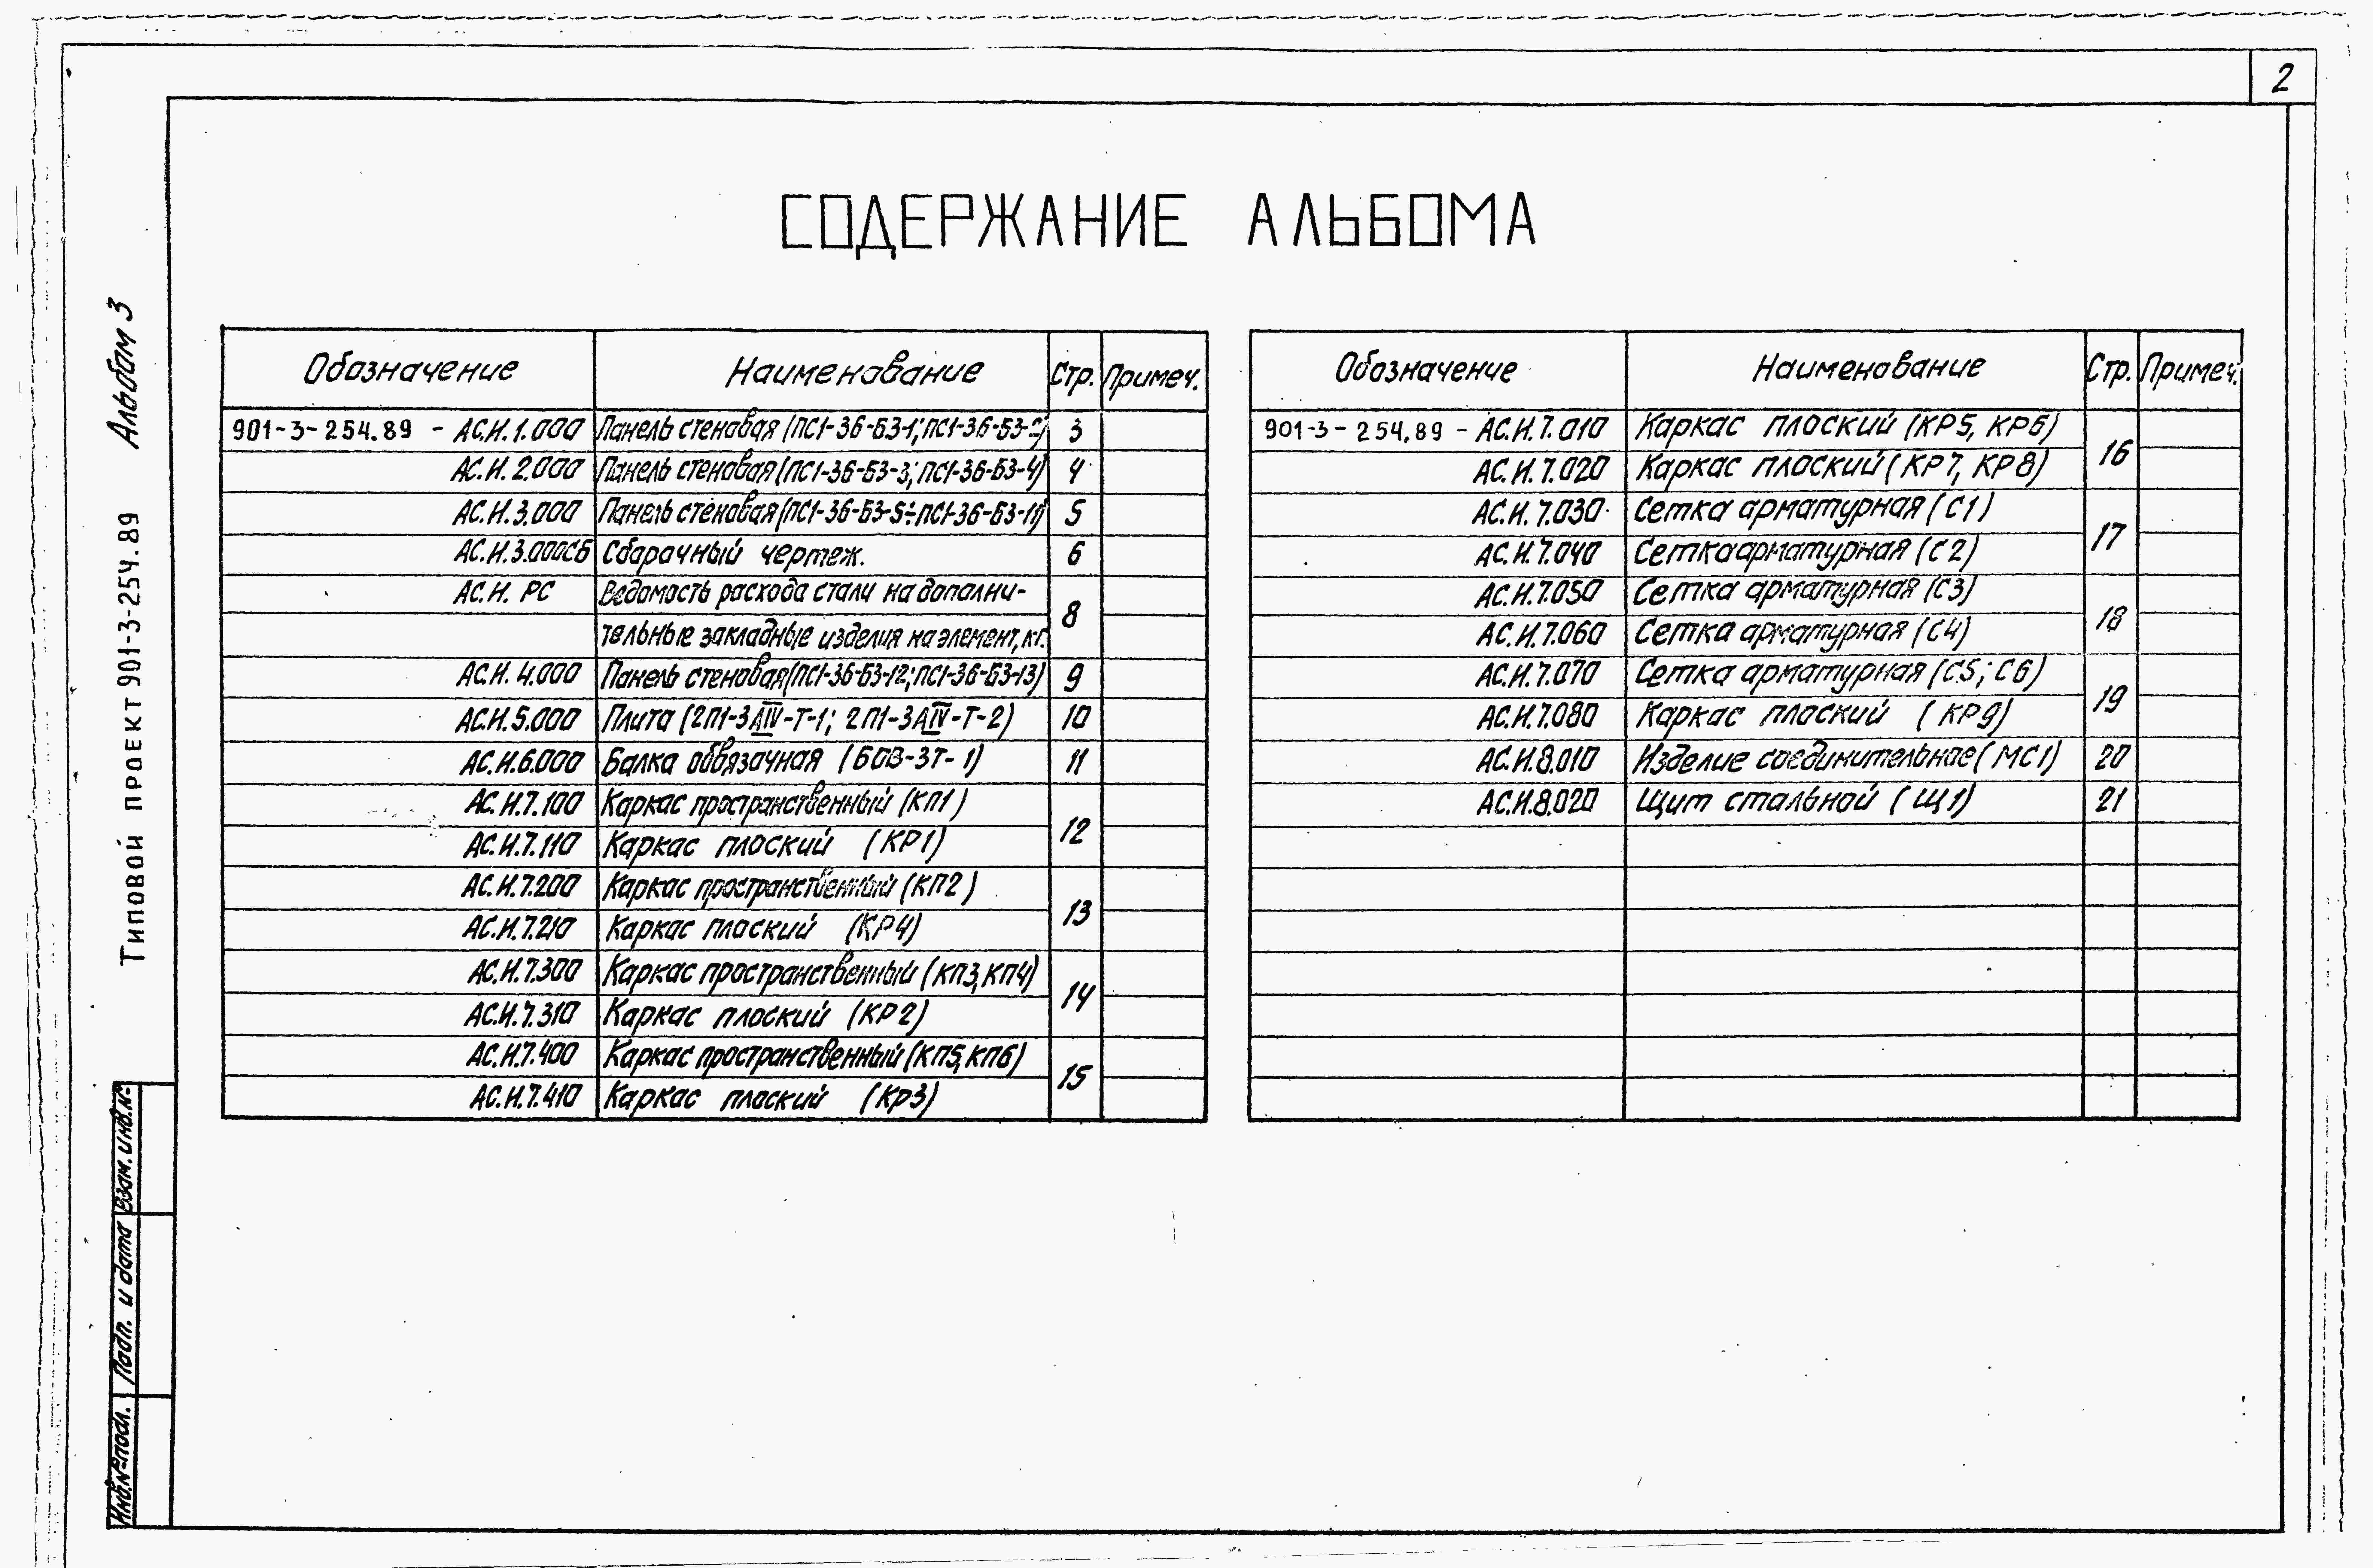 2
СОДЕРЖАНИЕ АЛЬБОМА
Типовой проект 901-3-254.89 Альбом 3
Обозначение Наименование Стр. Примеч.
901-3-254.89 - АС.И.1.000 Панель стеновая (ПС1-36-Б3-1; ПС1-36-Б3-2) 3
АС.И.2.000 Панель стеновая (ПС1-36-Б3-3; ПС1-36-Б3-4) 4
АС.И.3.000 Панель стеновая (ПС1-36-Б3-5÷ПС1-36-Б3-11) 5
АС.И.3.000СБ Сборочный чертеж. 6
АС.И. РС Ведомость расхода стали на дополни-
тельные закладные изделия на элемент, кг. 8
АС.И.4.000 Панель стеновая (ПС1-36-Б3-12; ПС1-36-Б3-13) 9
АС.И.5.000 Плита (2П1-3АIV-Т-1; 2П1-3АIV-Т-2) 10
АС.И.6.000 Балка обвязочная (БОВ-3Т-1) 11
АС.И.7.100 Каркас пространственный (КП1)
12
АС.И.7.110 Каркас плоский (КР1)
АС.И.7.200 Каркас пространственный (КП2)
13
АС.И.7.210 Каркас плоский (КР4)
АС.И.7.300 Каркас пространственный (КП3, КП4)
14
АС.И.7.310 Каркас плоский (КР2)
АС.И.7.400 Каркас пространственный (КП5, КП6)
15
АС.И.7.410 Каркас плоский (КР3)
Обозначение Наименование Стр. Примеч.
901-3-254.89 - АС.И.7.010 Каркас плоский (КР5, КР6)
16
АС.И.7.020 Каркас плоский (КР7, КР8)
АС.И.7.030 Сетка арматурная (С1)
17
АС.И.7.040 Сетка арматурная (С2)
АС.И.7.050 Сетка арматурная (С3)
18
АС.И.7.060 Сетка арматурная (С4)
АС.И.7.070 Сетка арматурная (С5; С6)
19
АС.И.7.080 Каркас плоский (КР9)
АС.И.8.010 Изделие соединительное (МС1) 20
АС.И.8.020 Щит стальной (Щ1) 21
Инв.№подл. Подп. и дата Взам.инв.№